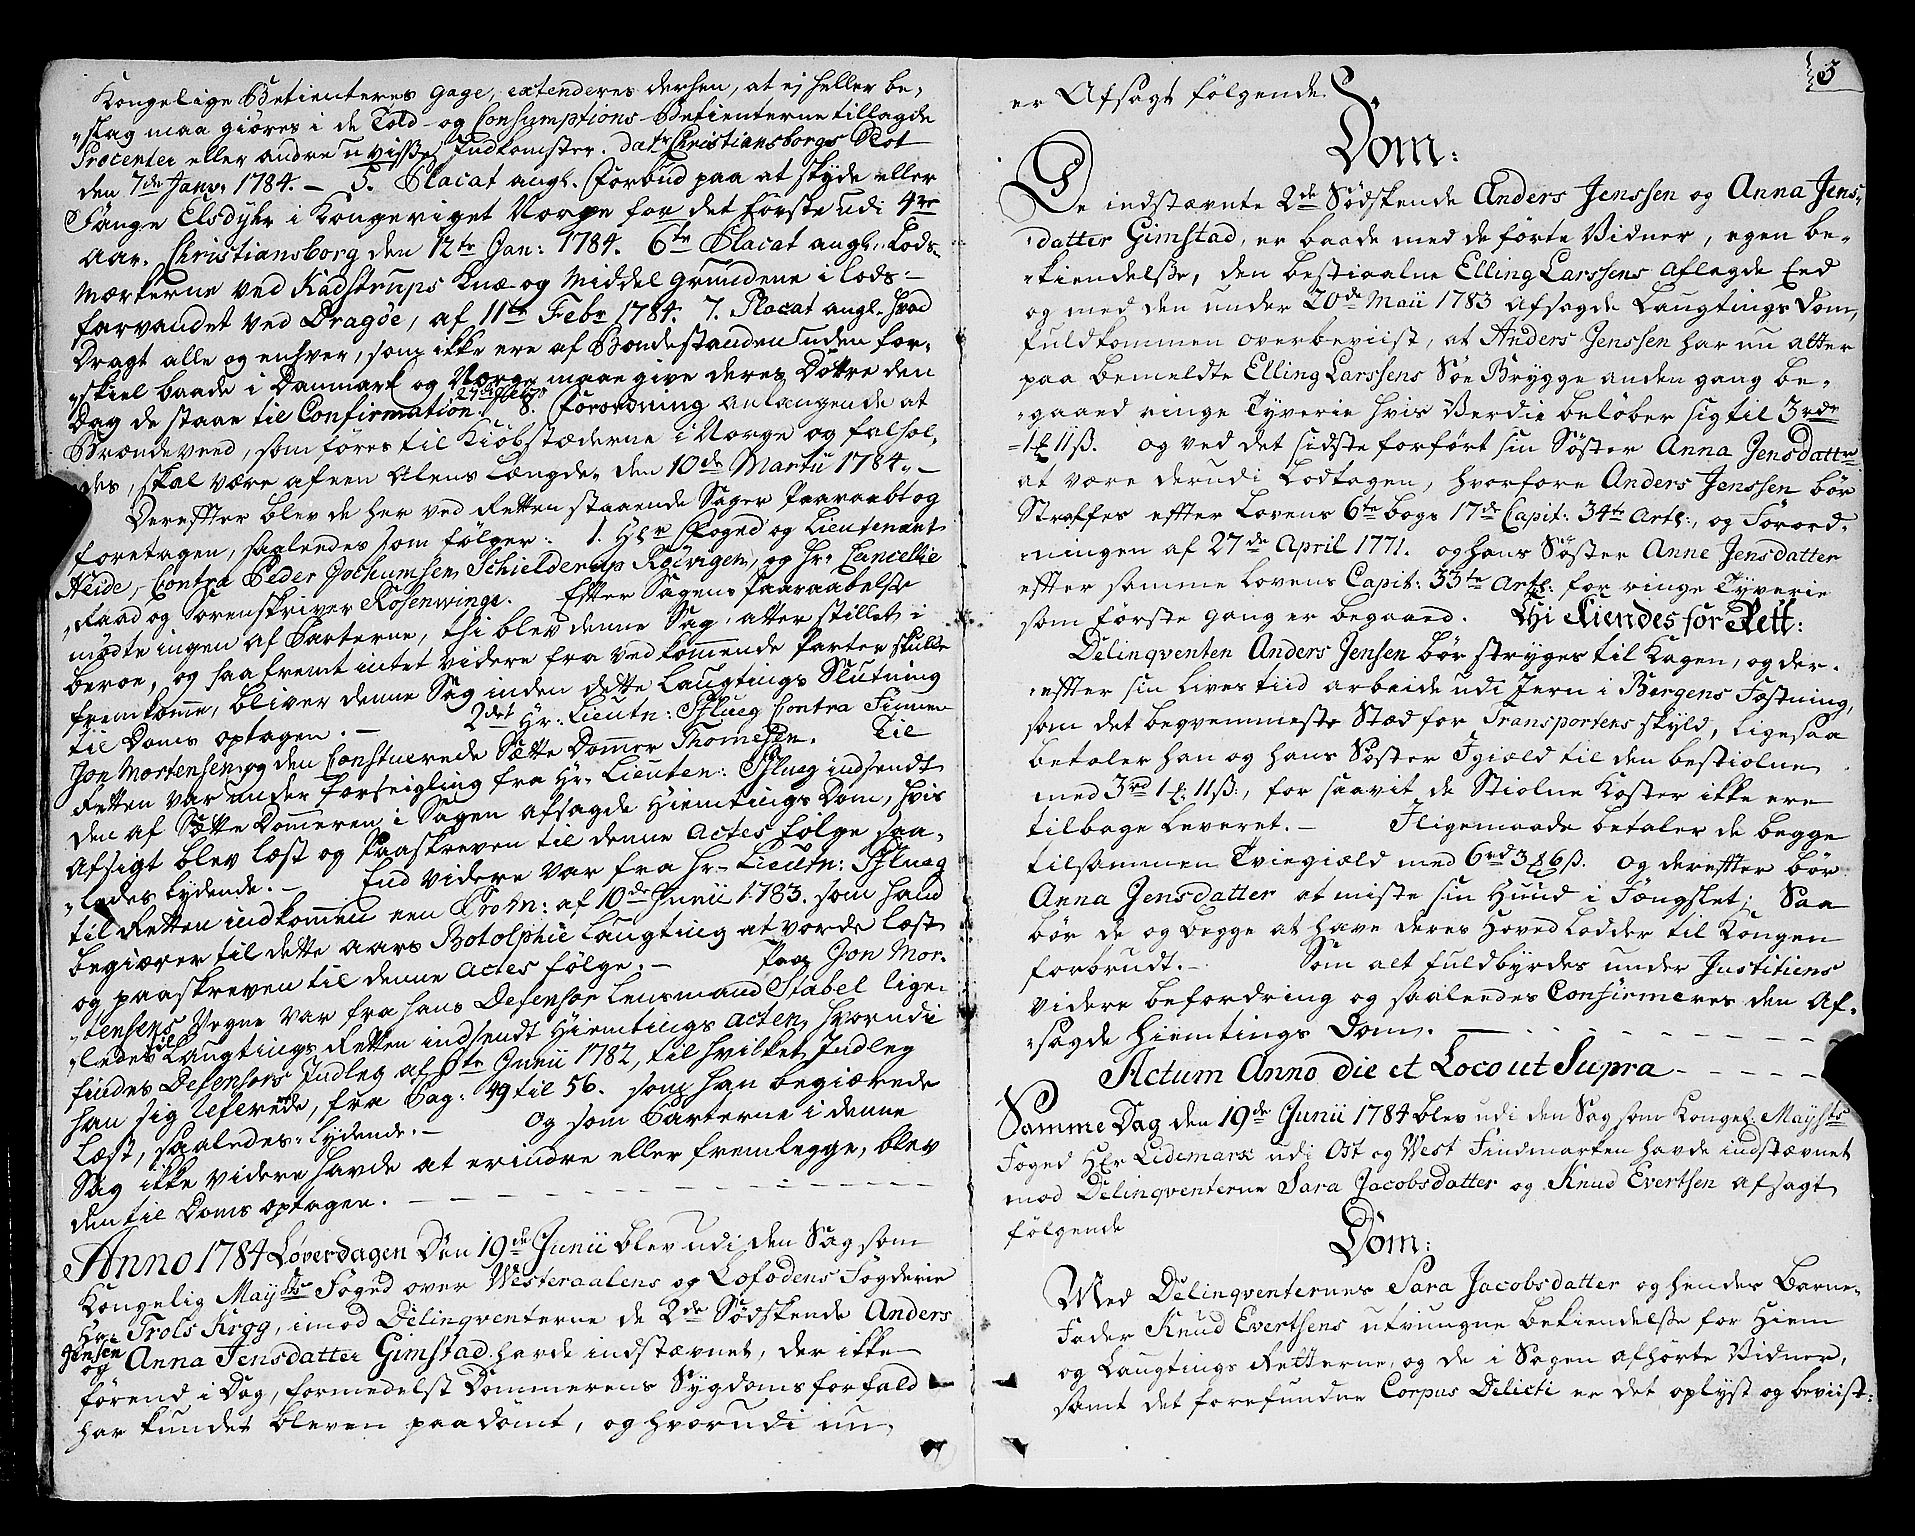 Kongelige Betienteres gage, extenderes derhen, at ej heller be„
„slag maa giøres i de Told- og Consumptions-Betienterne tillagde
Procenter eller andre uvisse Indkomster. dat: Christiansborgs Slot
den 7de Janv: 1784. – 5. Placat angl. Forbud paa at skyde eller
Fange Elsdyhr i Kongeriget Norge for det første udi 4re
Aar. Christiansborg den 12te Jan: 1784. 6te Placat angl: Lods-
Mærkerne ved Kadstrups Knæ og Middel Grundene i Lods-
farvandet ved Dragøe, af 11te Febr 1784. 7. Placat angl. hvad
Dragt alle og enhver, som ikke ere af Bondestanden uden for-
„skiel baade i Danmark og Norge maae give deres Døttre den
Dag de staae til Confirmation. 8. Forordning anlangende at
Brændeveed, som føres til Kiøbstæderne i Norge og falhol„
des, skal være af een Alens Længde, den 10de Martii 1784. –
Derefter blev de her ved Retten staaende Sager Paaraabt og
foretagen, saaledes som følger: 1. Hr Foged og Lieutenant
Heide, Contra Peder Jochumsen, Schielderup Røevigen, og Hr. Cancellie
„Raad og Sorenskriver Rosenwinge. Efter Sagens Paaraabelse
mødte ingen af Parterne, thi blev denne Sag atter stillet i
beroe, og saafremt intet videre fra vedkommende Parter skulde
fremkomme, bliver denne Sag inden dette Laugtings Slutning
til Doms optagen. – 2det Hr. Lieutn: Pflueg Contra Finnen
Jon Mortensen og den Constituerede Sætte Dommer Thomesen. Til
Retten var under forseigling fra Hr. Lieuten: Pflueg indsendt
den af Sætte Dommeren i Sagen afsagde Hiemtings Dom, hvis
Afsigt blev læst og Paaskreven til denne Actes følge saa„
„ledes lydende. – End videre var fra Hr. Lieutn: Pflueg
til Retten indkommen een Prom: af 10de Junii 1783. som hand
begiærer til dette Aars Botolphii Laugting at vorde læst
og paaskreven til denne Actes følge. – Paa Jon Mor-
„tensens Vegne var fra hans Defensor Lensmand Stabel lige-
„ledes til Laugtings Retten indsendt Hiemtings Acten, hvorudi
findes Defensors Indleg af Junii 1782, til hvilket Indleg
han sig refererede, fra Pag: 49 til 56. som han begiærede
læst, saaledes lydende. – Og som Parterne i denne
Sag ikke videre havde at erindre eller fremlegge, blev
den til Doms optagen. –
Anno 1784 Løverdagen Den 19de Junii blev udi den Sag som
Kongelig Mayts Foged over Westeraalens og Lofodens Fogderie
Hr. Trols Krog, imod Delinqventerne de 2de Sødskende Anders
Jensen og Anna Jensdatter Gimstad havde indstævnet, der ikke
førend i Dag, formedelst Dommerens Sygdoms forfald
har kundet bleven paadømt, og hvorudi nu
5
er Afsagt følgende
Dom:
De indstævnte 2de Sødskende Anders Jenssen og Anna Jens„
„datter Gimstad, er baade med de førte Vidner, egen be„
„kiendelse, den bestiaalne Elling Larssens aflagde Eed
og med den under 20de Maii 1783 afsagde Laugtings Dom,
fuldkommen overbeviist, at Anders Jenssen har nu atter
paa bemeldte Elling Larssens Søe Brygge anden gang be„
„gaaed ringe Tyverie hvis Verdie beløber sig til 3rdr
1 ₶ 11ß. og ved det sidste forført sin Søster Anna Jensdatter
at være derudi Lodtagen, hvorfore Anders Jenssen bør
Straffes effter Lovens 6te bogs 17de Capit: 34te Artl:, og Forord„
ningen af 27de April 1771. og hans Søster Anne Jensdatter
effter samme Lovens Capit: 33te Artl: for ringe Tyverie
som første gang er begaaed. Thi Kiendes for Rett:
Delinqventen Anders Jensen bør stryges til Kagen, og der„
„effter sin Livs tiid arbeide udi Jern i Bergens Fæstning,
som det beqvemmeste Stæd for Transportens skyld, ligesaa
betaler han og hans Søster Igiæld til den bestiolne
med 3rd 1 ₶ 11ß:, for saavit de Stiolne Koster ikke ere
tilbage Leveret. – Iligemaade betaler de begge
tilsammen Tviegiæld med 6rd 3 ₶ 6ß. og derefter bør
Anna Jensdatter at miste sin Huud i Fængslet; Saa
bør de og begge at have deres Hoved Lodder til Kongen
forbrudt. – Som alt fuldbyrdes under Justitiens
videre befordring og saaledes Confirmeres den Af„
„sagde Hiemtings Dom. –
Actum Anno die et Loco ut Supra
Samme Dag den 19de Junii 1784 blev udi den Sag som Kongel. Mayts
Foged Hr Lidemark udi Ost og Vest Findmarken havde indstævnet
mod Delinqventerne Sara Jacobsdatter og Knud Evertsen afsagt
følgende
Dom:
Med Delinqventernes Sara Jacobsdatter og hendes Barne-
Fader Knud Evertsens utvungne bekiendelse for Hiem
og Laugtings Retterne, og de i Sagen afhørte Vidner,
samt det forefundne Corpus Delicti er det oplyst og beviist: